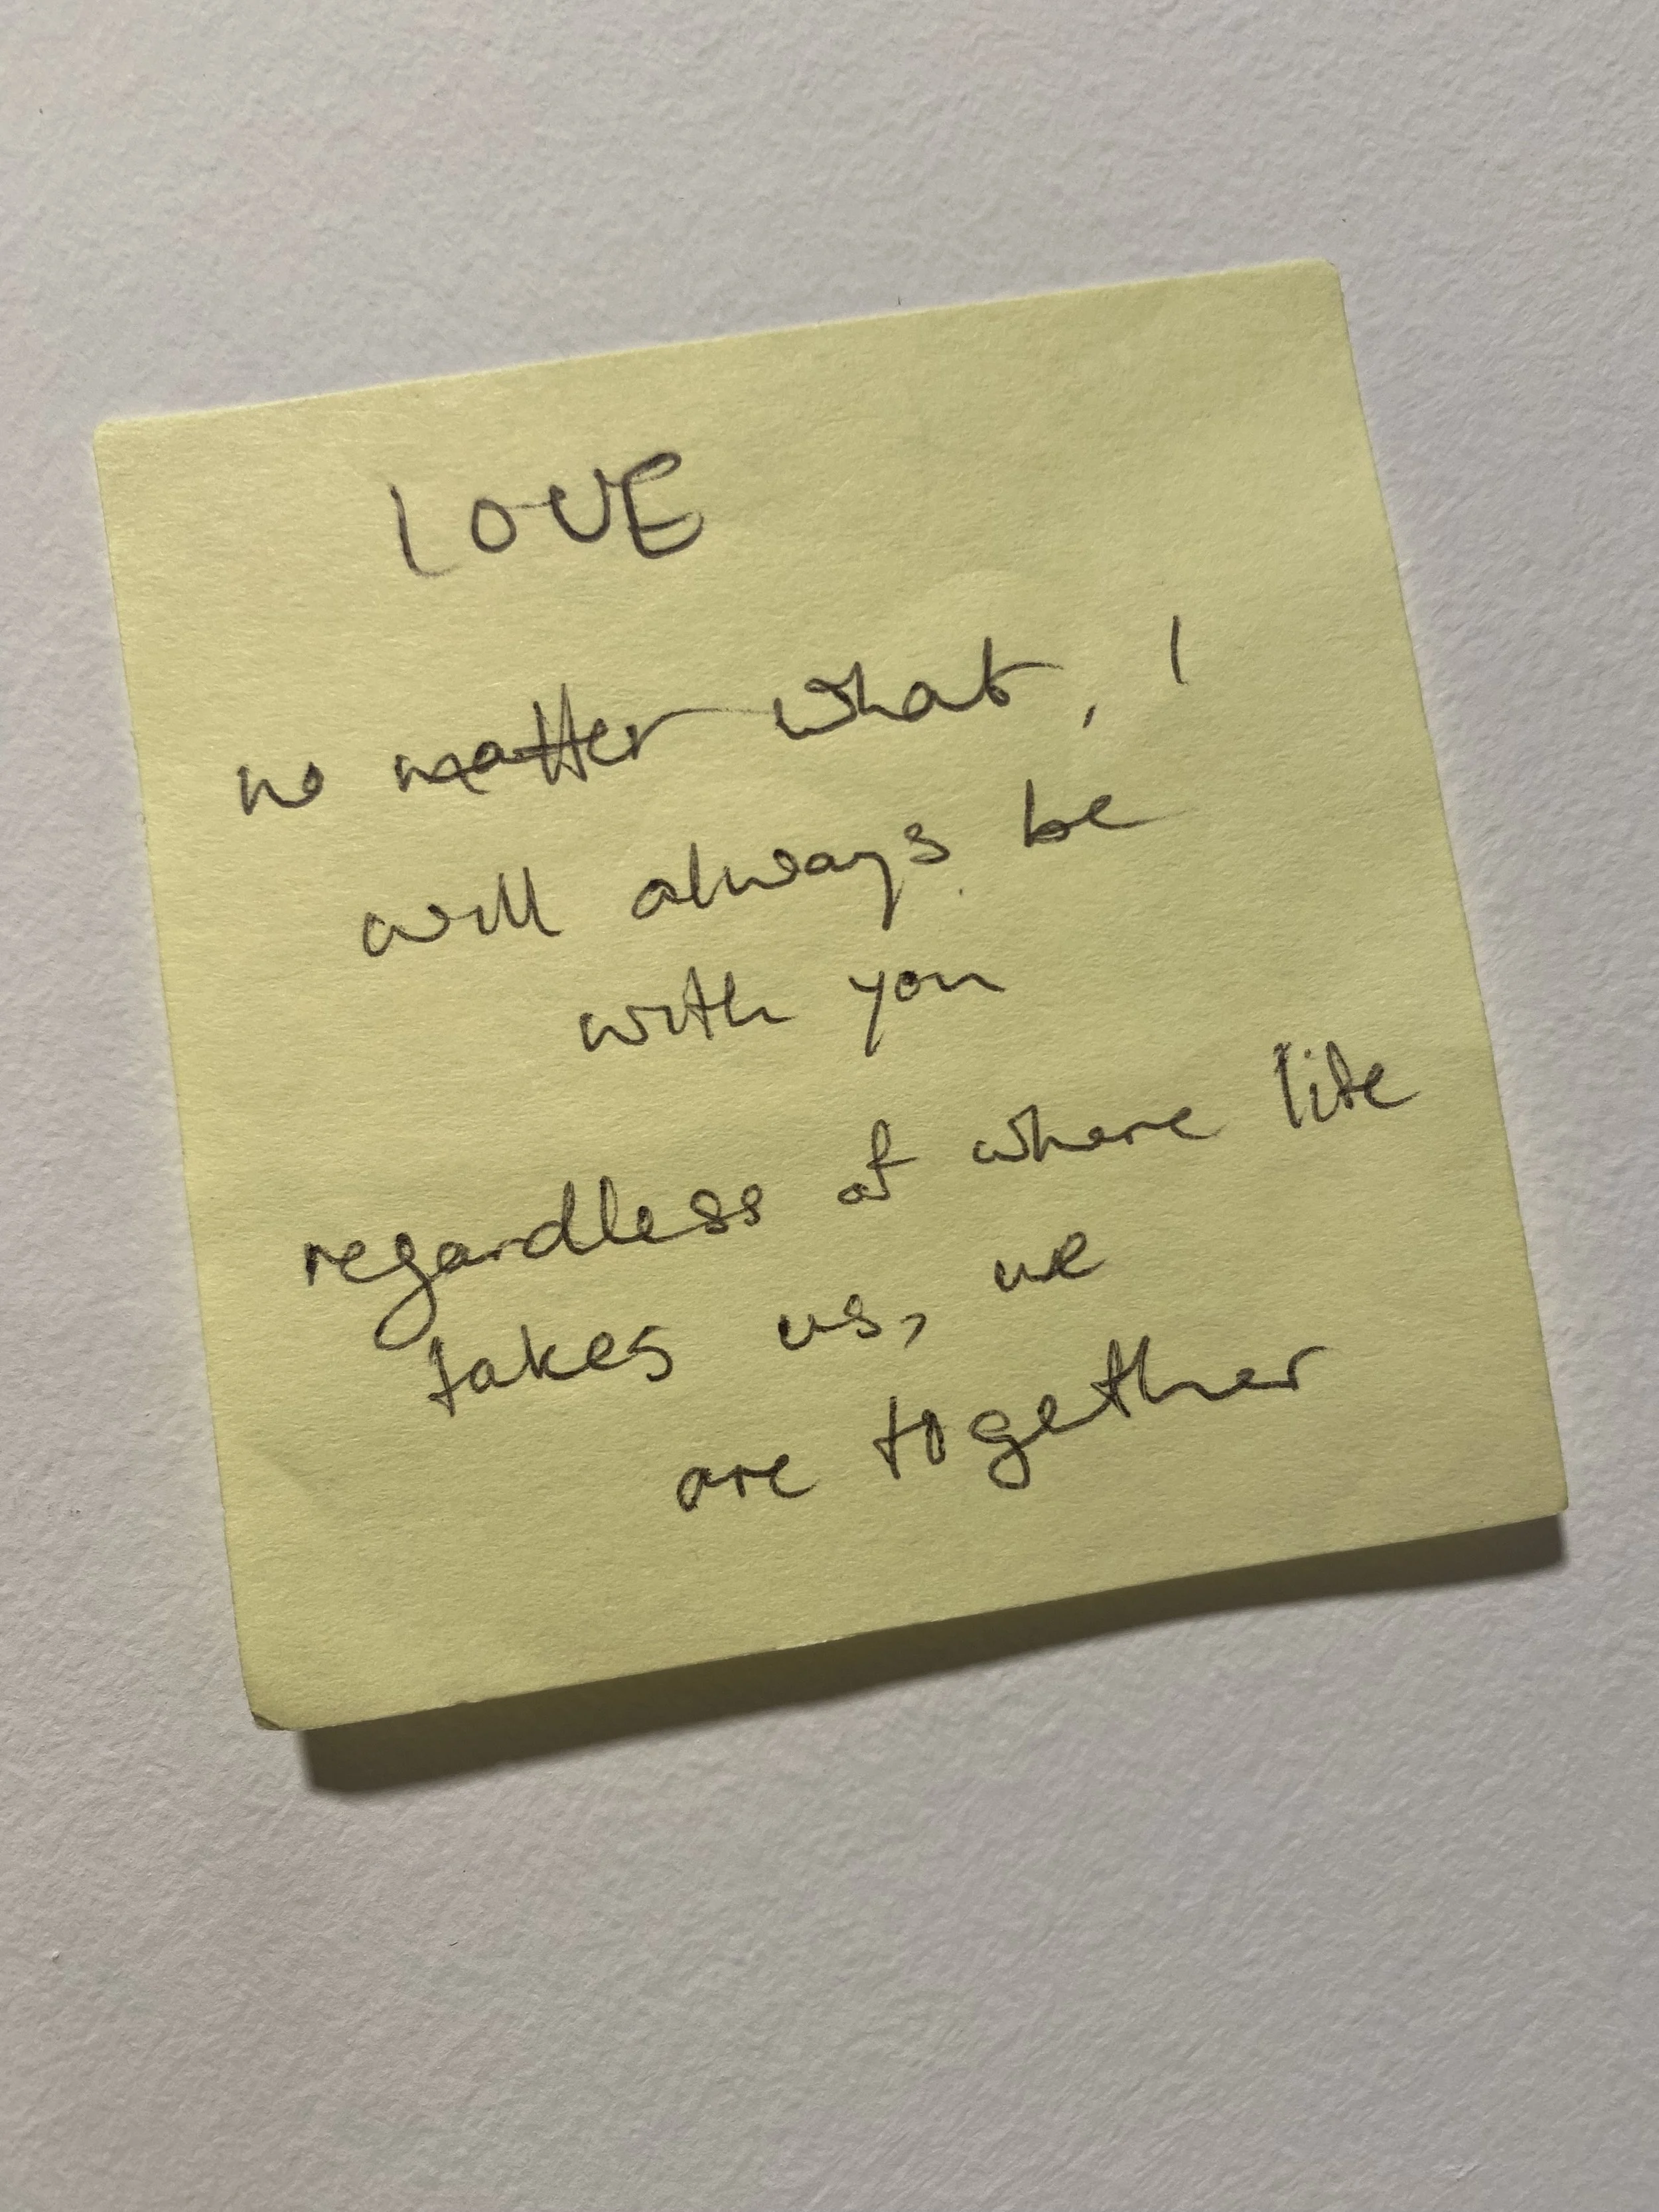 LOVE
no matter what, I
will always be
with you
regardless of where life
takes us, we
are together